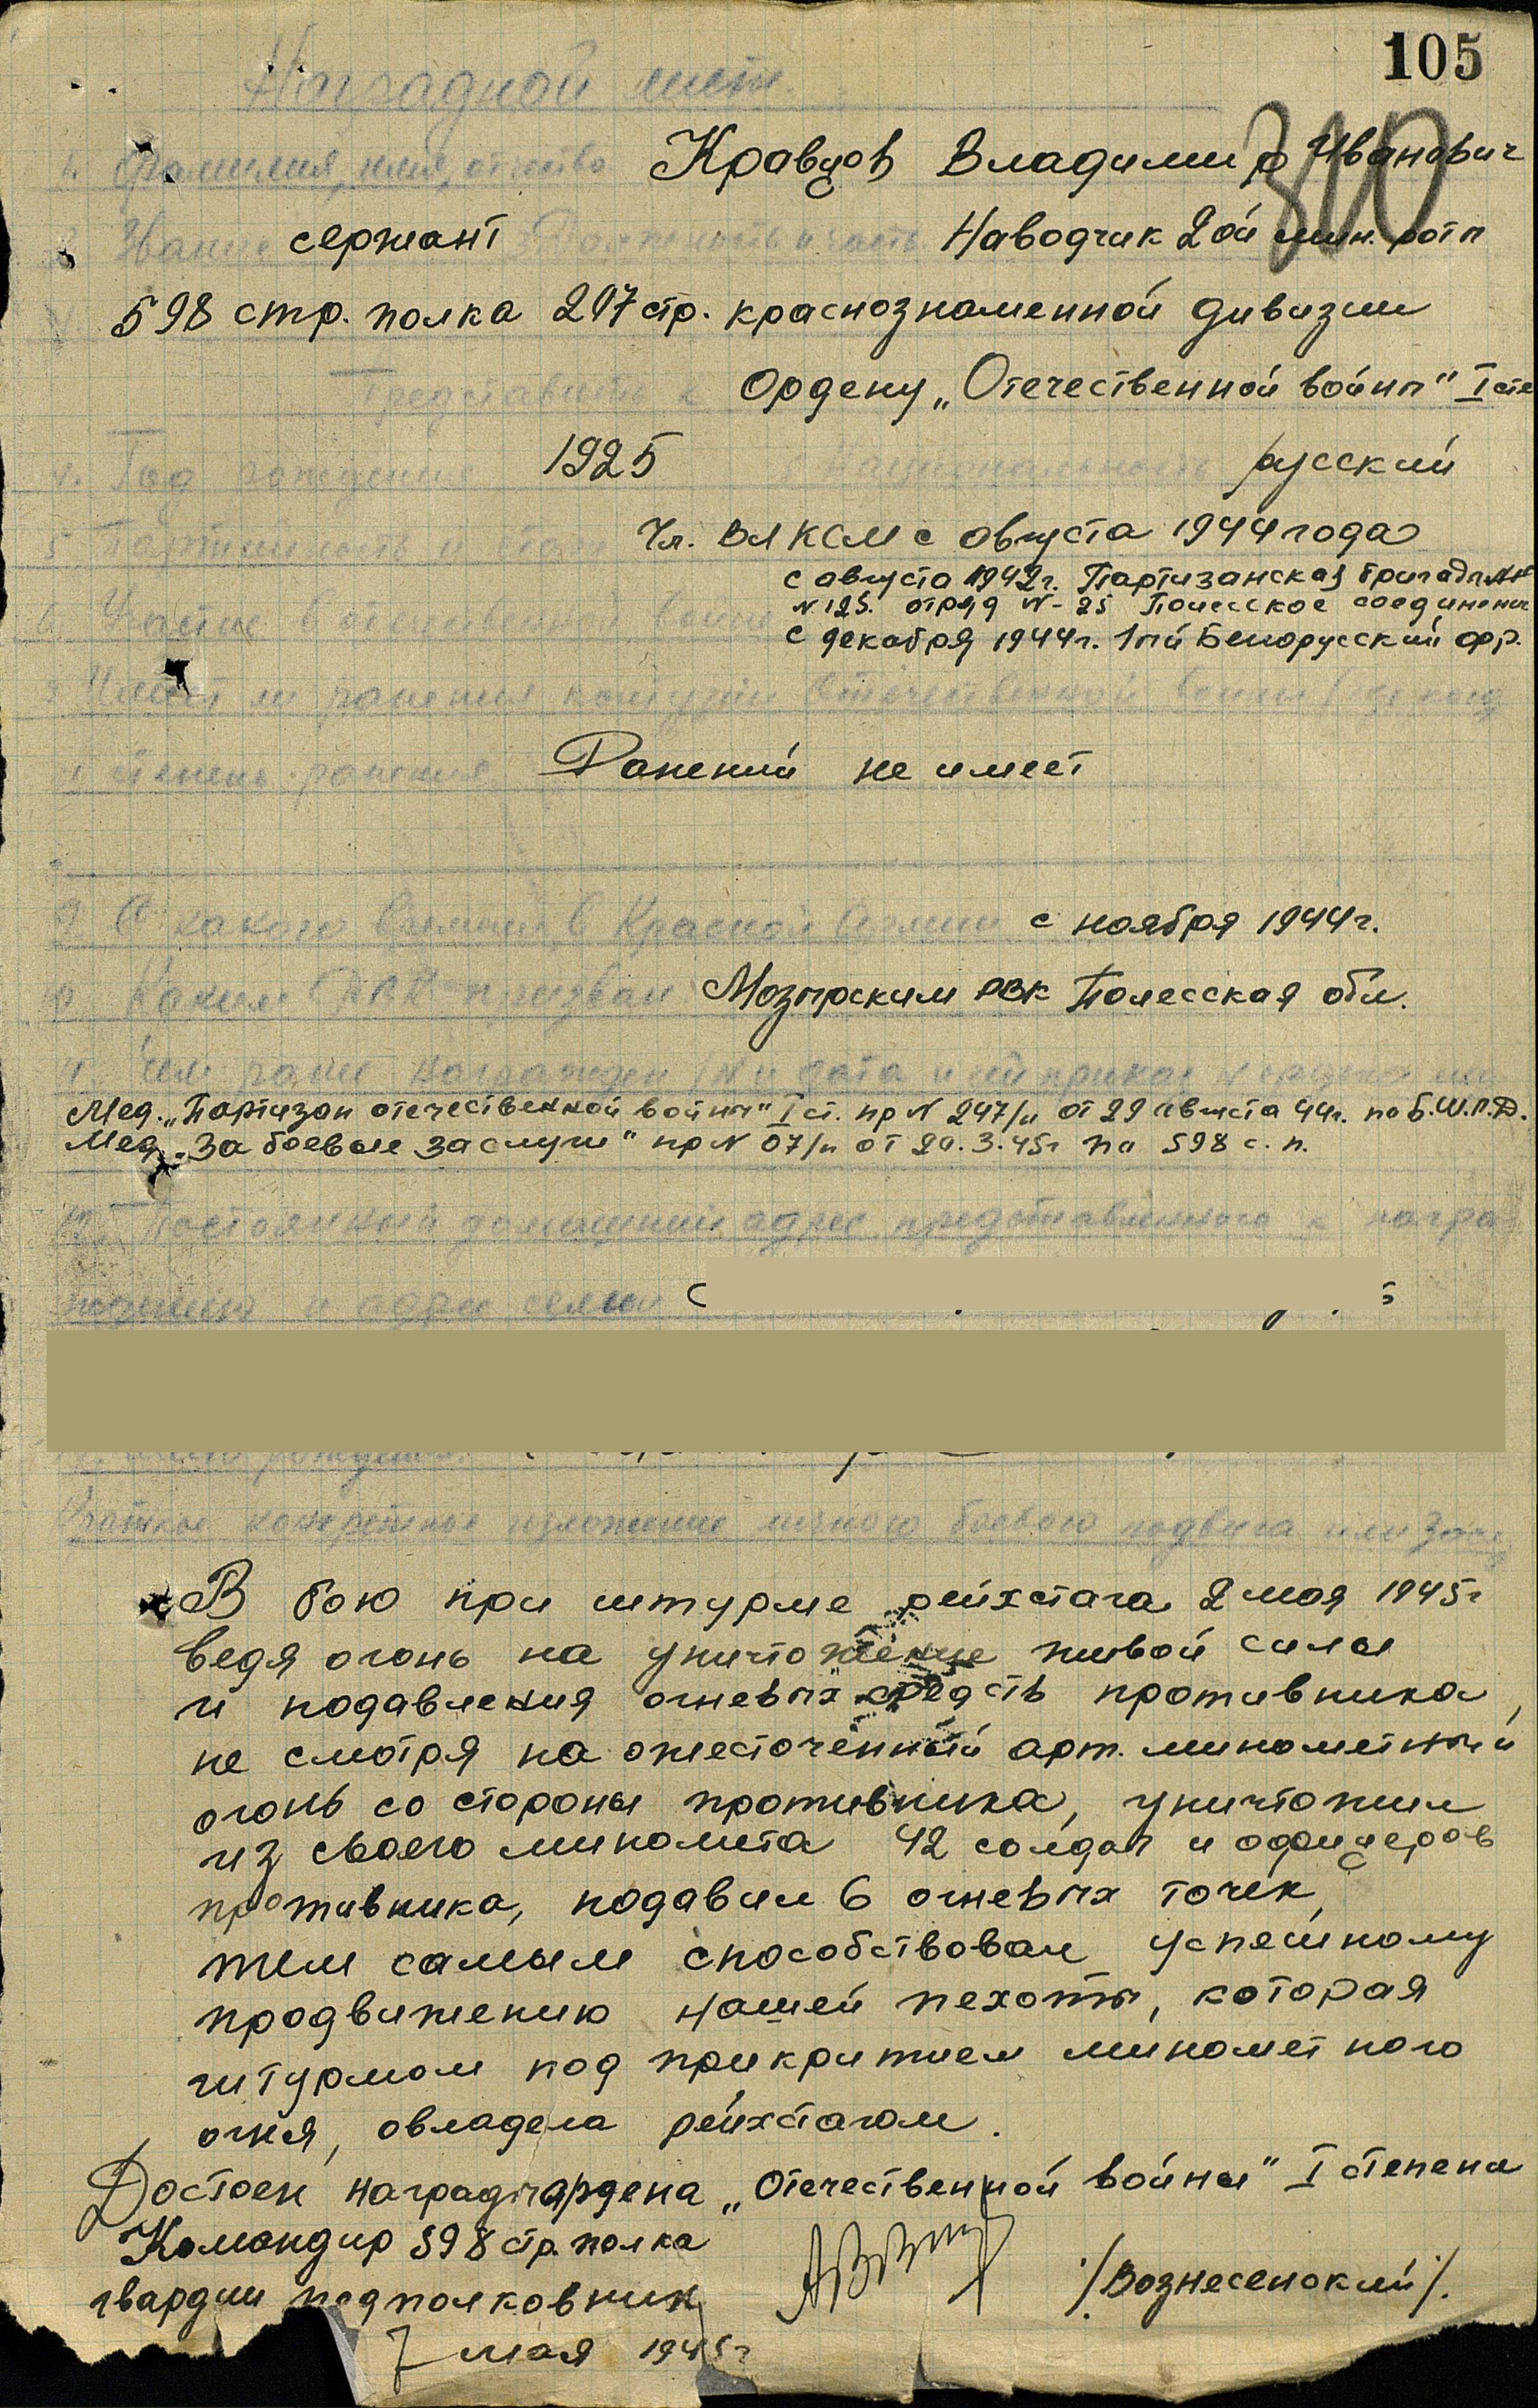 105
Наградной лист
1. Фамилия, имя, отчество Кравцов Владимир Иванович
Звание сержант Должность и часть Наводчик 2ой мин. роты
598 стр. полка 207 стр. краснознаменной дивизии
Представить к Ордену „Отечественной войны" I сте
4. Год рождения 1925 национальность русский
5 Партийность и стаж Чл. ВЛКСМ с августа 1944 года
с августа 1942г. Партизанская бригада
N 125. отряд N-25 Полесское соединение
6. Участие в отечественной войне с декабря 1944г. 1ый Белорусский фр.
Имеет ли ранения контузии в отечественной войне
степень ранения Ранений не имеет
9 С какого времени в Красной Армии с ноября 1944г.
Каким РВК призван Мозырским РВК Полесская обл.
Чем ранее награжден (N и дата приказ
Мед. „Партизан отечественной войны" I ст. пр N 247/н от 29 августа 44г. по Б.Ш.П.Д.
Мед. „За боевые заслуги" пр N 07/н от 20.3.45г по 598 с.п.
12. Постоянный домашний адрес представленного к награ
ждению и адрес семьи
рождения
Краткое конкретное изложение личного боевого подвига или
В бою при штурме рейхстага 2 мая 1945г
ведя огонь на уничтожение живой силы
и подавления огневых средств противника,
не смотря на ожесточенный арт. минометный
огонь со стороны противника, уничтожил
из своего миномета 42 солдат и офицеров
противника, подавил 6 огневых точек,
тем самым способствовал успешному
продвижению нашей пехоты, которая
штурмом под прикрытием минометного
огня, овладела рейхстагом.
Достоен награды ордена „Отечественной войны" I степени
Командир 598 стр. полка
гвардии подполковник /Вознесенский/.
7 мая 1945г